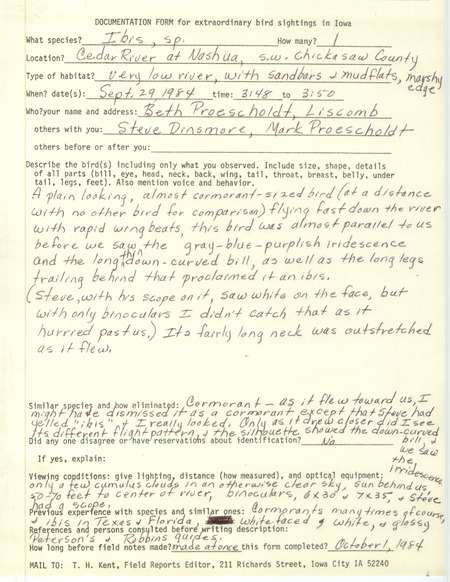 DOCUMENTATION FORM for extraordinary bird sightings in Iowa
What species? Ibis, sp. How many? 1
Location? Cedar River at Nashua, s.w. Chickasaw County
Type of habitat? very low river, with sandbars & mudflats, marshy edge
When? date(s): Sept. 29, 1984 time: 3:48 to 3:50
Who?your name and address: Beth Proescholdt, Liscomb
others with you: Steve Dinsmore, Mark Proescholdt
others before or after you:
Describe the bird(s) including only what you observed. Include size, shape, details
of all parts (bill, eye, head, neck, back, wing, tail, throat, breast, belly, under
tail, legs, feet). Also mention voice and behavior.
A plain looking, almost cormorant-sized bird (at a distance
with no other bird for comparism) flying fast down the river
with rapid wingbeats, this bird was almost parallel to us
before we saw the gray-blue-purplish iridescence
and the long thin down-curved bill, as well as the long legs
trailing behind that proclaimed it an ibis.
(Steve, with his scope on it, saw white on the face, but
with only binoculars I didn't catch that as it
hurried past us.) Its fairly long neck was outstretched
as it flew.
Similar species and how eliminated: Cormorant - as it flew toward us, I
might have dismissed it as a cormorant except that Steve had
yelled "ibis" & I really looked. Only as it drew closer did I see
its different flight pattern, & the silhouette showed the down-curved
bill, & we saw the irridescence
Did any one disagree or have reservations about identification? No
If yes, explain:
Viewing conditions: give lighting, distance (how measured), and optical equipment:
only a few cumulus clouds in an otherwise clear sky, sun behind us,
50-70 feet to center of river, binoculars, 6x30 & 7x35, & Steve
had a scope.
Previous experience with species and similar ones: Cormorants many times of course,
& ibis in Texas & Florida, white faced & white, & glossy
References and persons consulted before writing description:
Peterson's & Robbins guides.
How long before field notes made? made at once this form completed? October 1, 1984
MAIL TO: T. H. Kent, Field Reports Editor, 211 Richards Street, Iowa City IA 52240